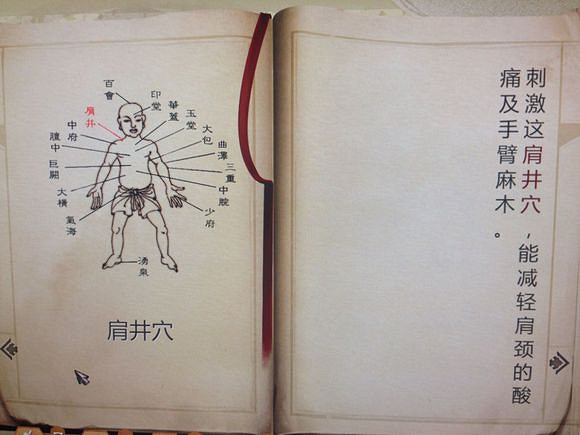 百會
印堂
華蓋
玉堂
大包
曲澤
三重
中脘
少府
湧泉
肩井
中府
膻中
巨闕
大橫
氣海
肩井穴
刺激这肩井穴，能减轻肩颈的酸
痛及手臂麻木。